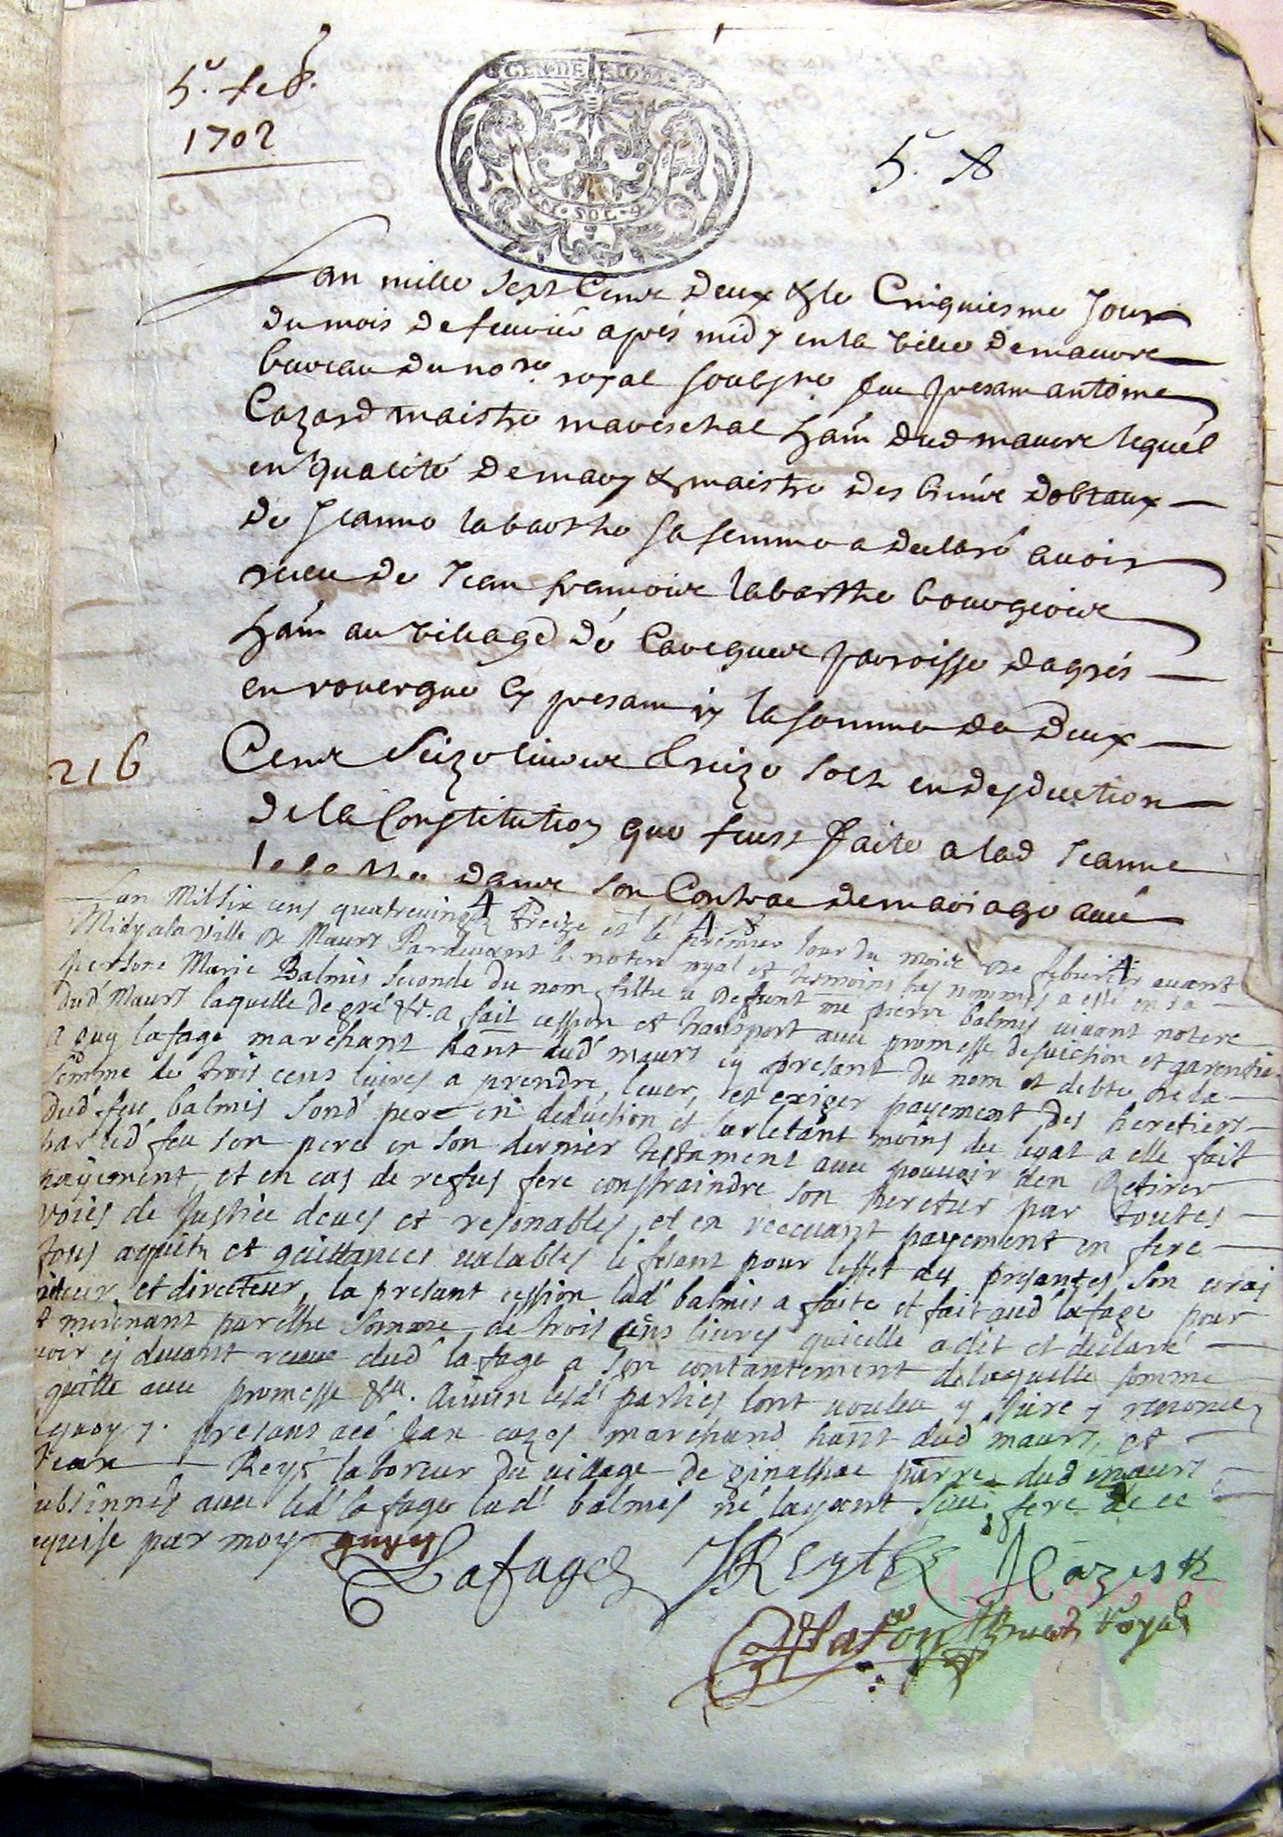 5e. feb.
1702
GEN DE RIOM
SOL
5. s
Lan mille sept Cens deux & le Cinquiesme Jour
du mois de feuvrié aprés midy en la ville de maurs
bureau du nore. royal soubsne feu presant antoine
Cazard maistre mareschal hãnt dud maurs lequel
en qualité de mary & maistre des biens dobtaux
de Jeanne labarthe sa femme a declaré avoir
receu de Jean francois labarthe bourgeois
hãnt au village de paroisse dagrés
en rouergue cy presant la somme de deux
216 Cens Seize livres treize solz en desduction
de la Constitution que feust faite a lad Jeanne
dans son Contrac de mariage aveé
Lan Mil six cens quatrevingt treize et le premier Jour du mois de febvrier avant
Midy a la ville de Maurs Pardevant le notere royal et tesmoins bas nommés a esté en sa
persone Marie Balmés seconde du nom filhe a defunt me pierre balmés vivant notere
dud' Maurs laquelle de gré &c. a fait cession et transport avec promesse desviction et garentie
a guy lafage marchant hãnt dud' maurs cy presant du nom et debte de la
somme de trois cens livres a prendre, lever, et exiger payement des heretiers
dud' feu balmés sond' pere en deduction et sur letant moins du legat a elle fait
par led' feu son pere en son dernier testament avec pouvoir den Retirer
payement, et en cas de refus fere constraindre son heretier par toutes
voies de Justice deues et resonables, et en recevant payement en fere
tous aquitz et quittances valables le fesant pour leffet des presantes son vrai
et directeur, la presant cession lad' balmés a faite et fait aud' lafage pour
et moienant pareilhe somme de trois cens livres quicelle a dit et declaré
cy devant receue dud' lafage a son contantement de laquelle somme
quitte avec promesse &c. Ainsin lesd' parties lont voulu y
presans Jean cazes marchand hãnt dud' maurs, et
Jean Reyt laboreur du village de pres dud maurs
subsinnés avec led' lafage lad' balmés né layant sceu fere de ce
requise par moy
Lafage J Reyt Cazes
Royal